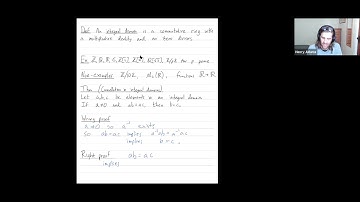 Def. An integral domain is a commutative ring with
a multiplicative identity and no zero divisors.
Ex. Z, Q, R, C, Z[i], Z/pZ for p prime
Non-examples Z/6Z, M₂(R), functions R→R
Thm (Cancellation in integral domains)
Let a,b,c be elements in an integral domain.
If a≠0 and ab=ac, then b=c.
Wrong proof
a≠0 so a⁻¹ exists
So ab=ac implies a⁻¹ab = a⁻¹ac
implies b = c.
Right proof ab = ac
implies
Henry Adams